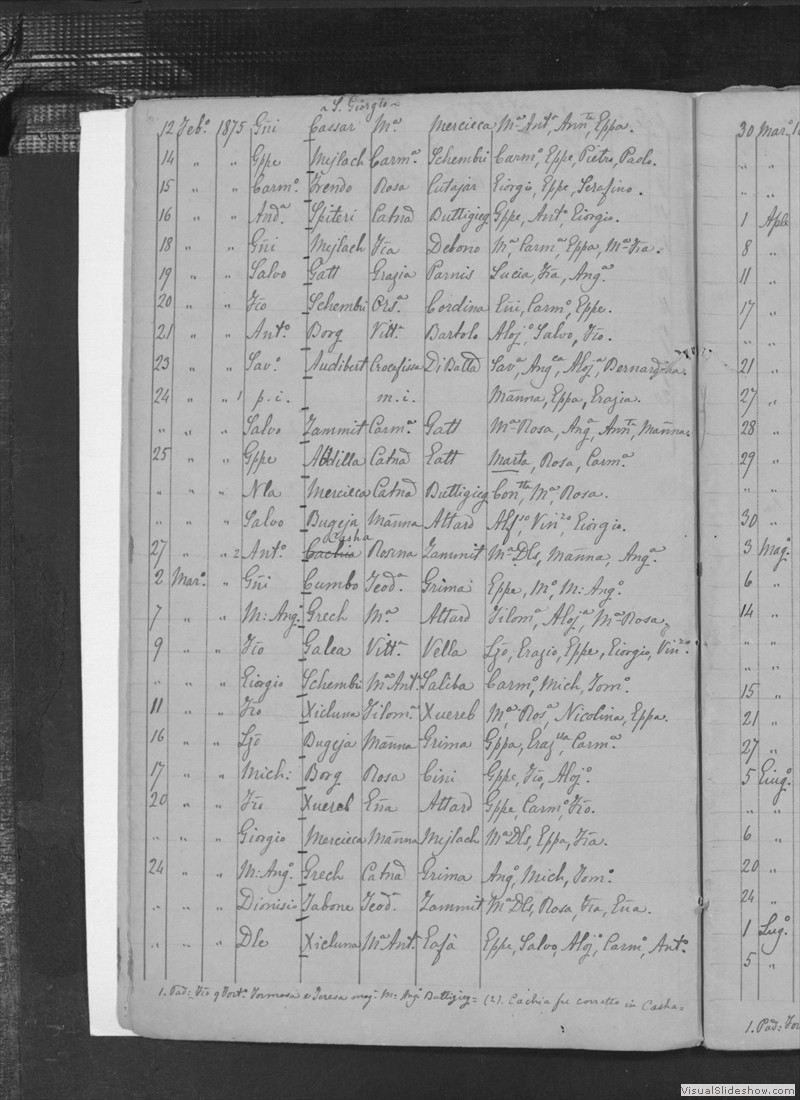 ~ S. Giorgio ~
12 Febº. 1875 Gñi Cassar Mª. Mercieca Mª Antª, Annta, Eppa.
14 " " Gppe Mejlach Carmª. Schembri Carmº, Eppe, Pietro, Paolo.
15 " " Carmº. Frendo Rosa Cutajar Eiorgio, Eppe, Serafino.
16 " " Andª. Spiteri Catnã Buttigieg Gppe, Antº, Eiorgio.
18 " " Gñi Mejlach Fča Debono Mª, Carmª, Eppa, Mª Fča.
19 " " Salvo Gatt Grazia Parnis Lucia, Fča, Angª.
20 " " Fčo Schembri Orsª. Cordina Eñi, Carmº, Eppe.
21 " " Antº. Borg Vittª. Bartolo Alojº, Salvo, Fčo.
23 " " Savº. Audibert Crocefissa Di Battã Savª, Angca, Alojª, Bernardina.
24 " " 1 p.i. m.i. Mãnna, Eppa, Erazia.
" " " Salvo Zammit Carmª. Gatt Mª Rosa, Angª, Annta, Mãnna.
25 " " Gppe Attilla Catnã Eatt Marta, Rosa, Carmª.
" " " Nla Mercieca Catnã Buttigieg Contta, Mª, Rosa.
" " " Salvo Bugeja Mãnna Attard Alfso, Vinzo, Eiorgio.
Casha
27 " " 2 Antº. Cachia Rosina Zammit Mª Dls, Mãnna, Angª.
2 Marº. " Gñi Cumbo Teodª. Grima Eppe, Mº, M: Angº.
7 " " M: Angº. Grech Mª. Attard Filomª, Alojª, Mª Rosa,
9 " " Fčo Galea Vittª. Vella Ljõ, Erazio, Eppe, Eiorgio, Vinzo.
" " " Eiorgio Schembri Mª Antª. Saliba Carmº, Mich, Tomº.
11 " " Fčo Xicluna Filomª Xuereb Mª, Rosª, Nicolina, Eppa.
16 " " Ljõ Bugeja Mãnna Grima Gppa, Erazlla, Carmª.
17 " " Mich: Borg Rosa Cini Gppe, Fčo, Alojº.
20 " " Fčo Xuereb Eña Attard Gppe, Carmº, Fčo.
" " " Giorgio Mercieca Mãnna Mejlach Mª Dls, Eppa, Fča.
24 " " M: Angº. Grech Catnã Grima Angº, Mich, Tomº.
" " " Dionisio Tabone Teodª. Zammit Mª Dls, Rosa, Fča, Eña.
" " " Dle Xicluna Mª Antª. Eafà Eppe, Salvo, Alojº, Carmº, Antº.
1. Pad: Fčo q Fortº. Formosa e Teresa mog. M: Angº Buttigieg = (2). Cachia fu corretto in Casha =
30 Marº. 1
" "
" "
1 Aple
8 "
11 "
17 "
" "
21 "
27 "
28 "
29 "
" "
30 "
3 Magº.
6 "
14 "
" "
" "
15 "
21 "
27 "
5 Eiugº.
" "
6 "
20 "
24 "
1 Lugº.
5 "
1. Pad: For
VisualSlideshow.com